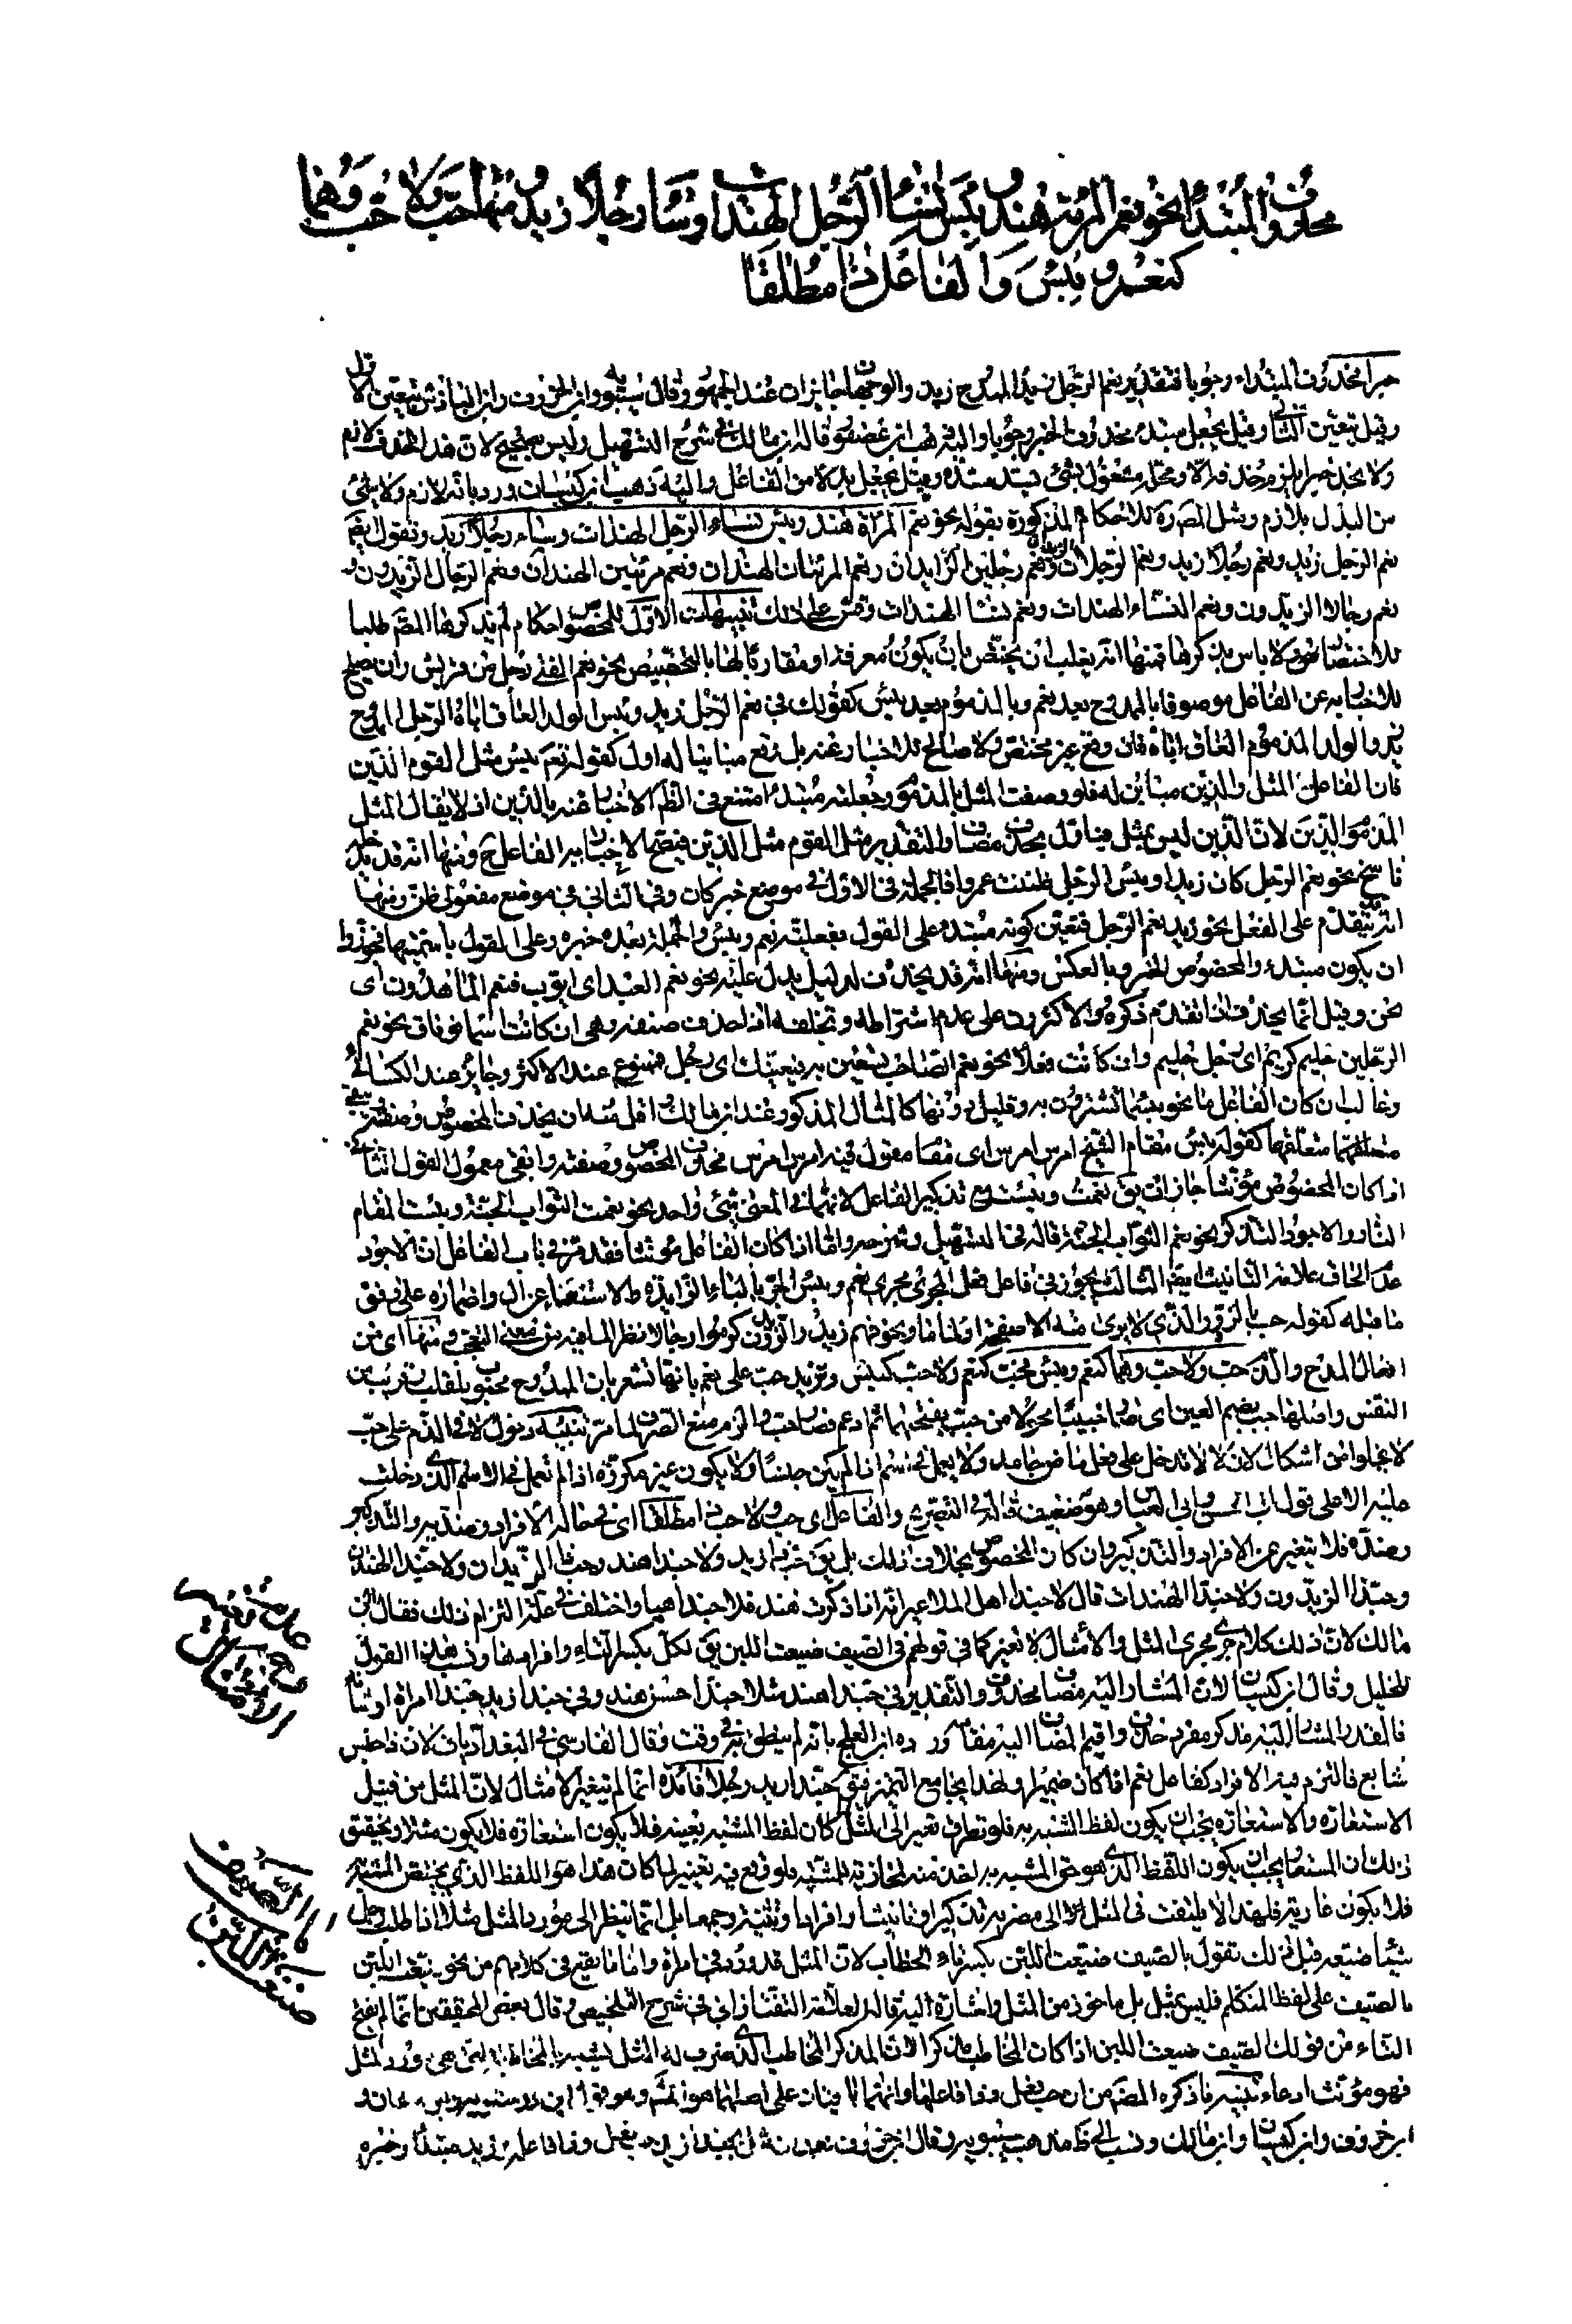 محذوف المبتدأ نحو نعم المرئة هند و بئس نساء الرجل الهندات و ساء رجلا زيد و منها حب و لا حب و هما
كنعم و بئس و الفاعل ذا مطلقا
خبرا محذوف المبتداء وجوبا فتقدير نعم الرجل زيد الممدوح زيد والوجهان جايزان عند الجمهور وقال سيبويه وابن الخروف وابن الباذش يتعين الاول
وقيل يتعين الثاني وقيل يجعل مبتدء محذوف الخبر وجوبا واليه ذهب ابن عصفور قال ابن مالك في شرح التسهيل وليس بصحيح لان هذا الحذف لازم
ولا نجد خبرا يلزم حذفه الا ومحله مشغول بشئ يسد مسده وقيل يجعل بدلا من الفاعل واليه ذهب ابن كيسان ورد بانه لازم ولا شئ
من البدل بلازم ومثل المص ره للاحكام المذكورة بقوله نحو نعم المرأة هند وبئس نساء الرجل الهندات وساء رجلا زيد وتقول
نعم الرجل زيد ونعم رجلا زيد ونعم الرجلان الزيدان ونعم رجلين الزيدان ونعم المرئتان الهندان ونعم مرئتين الهندان ونعم الرجال الزيدون و
نعم رجالا الزيدون ونعم النساء الهندات ونعم نساء الهندات وقس على ذلك تنبيهات الاول للمخصوص احكام لم يذكرها المص طلبا
للاختصار ولا باس بذكرها فمنها انه يغلب ان يختص بان يكون معرفة او مقاربا لها بالتخصيص نحو نعم الفتى رجل من قريش وان يصلح
للاخبار به عن الفاعل موصوفا بالممدوح بعد نعم وبالمذموم بعد بئس كقولك في نعم الرجل زيد وبئس الولد العاق اباه الرجل الممدوح
زيد والولد المذموم العاق اباه فان وقع غير مختص ولا صالح للاخبار عنه بل وقع مباينا له اول كقوله تعم بئس مثل القوم الذين
فان الفاعل المثل والذين مباين له فلو وصفت المثل بالمذموم وجعلته مبتدء امتنع في النظم الاخبار عنه بالذين اذ لا يقال المثل
المذموم الذين لان الذين ليس بمثل فياول بحذف مضاف والتقدير مثل القوم مثل الذين فيصح الاخبار به الفاعل ح ومنها انه قد يدخله
ناسخ نحو نعم الرجل كان زيد او بئس الرجل ظننت عمروا فالجملة في الاول في موضع خبر كان وفي الثاني في موضع مفعولي ظن ومنها
انه يتقدم على الفعل نحو زيد نعم الرجل فتعين كونه مبتدء على القول بفعلية نعم وبئس والجملة بعده خبره وعلى القول باسميتهما فجوزوا
ان يكون مبتدء والمخصوص الخبر وبالعكس ومنها انه قد يحذف لدليل يدل عليه نحو نعم العبد اي ايوب فنعم الماهدون اي
نحن وقيل انما يحذف اذا تقدم ذكره والاكثرون على عدم اشتراطه وتخلفه اذا حذف صفته وهي ان كانت اسما نحو
الرجلين حليم كريم اي رجل حليم وان كانت فعلا نحو نعم الصاحب تستعين به فيعينك اي رجل فممنوع عند الاكثر وجايز عند الكسائي
وغالب ان كان الفاعل ما نحو بئسما تشترون به وقليل دونها كالمثال المذكور وعند ابن مالك اقل منه ان يحذف المخصوص وصفته ويبقى
متعلقهما كقوله بئس مقام الشيخ امرس امرس اي مقام مقول فيه امرس امرس فحذف المخصوص وصفته وابقى معمول القول الثاني
اذا كان المخصوص مؤنثا جاز ان يق نعمت وبئست مع تذكير الفاعل لانهما في المعنى شئ واحد نحو نعمت الثواب الجنة وبئست المقام
النار والاجود التذكير نحو نعم الثواب الجنة قاله في التسهيل واما اذا كان الفاعل مؤنثا فقد مر في باب الفاعل ان الاجود
عدم الحاق علامة التانيث ايضا الثالث يجوز في فاعل فعل المجرى مجرى نعم وبئس الجر بالباء الزايدة والاستغناء عن ال واضماره على وفق
ما قبله كقوله حب بالزور الذي لا يرى منه الا صفحة او لمام ونحو فهم زيد والزيدون كرموا رجالا نظرا لما فيه من معنى التعجب ومنها اي من
افعال المدح والذم حب ولا حب وهما كنعم وبئس فحب كنعم ولا حب كبئس وتزيد حب على نعم بانها تشعر بان الممدوح محبوب للقلب وقريب من
النفس واصلها حبب بضم العين اي صار حبيبا محولا من حبب بفتحها ثم ادغم فصار حب والزم منع التصرف لما مر تنبيه دخول لا في الذم على حب
لا يخلو من اشكال لان لا لا تدخل على فعل ماض جامد ولا يعمل في اسم اذا لم يكن جنسا ولا يكون غير مكررة اذا لم تعمل في الاسم الذي دخلت
عليه الا على قول ابي الحسن وابي العباس وهو ضعيف قاله في التصريح والفاعل اي حب ولا حب ذا مطلقا اي في حالة الافراد وضديه والتذكير
وضده فلا يتغير عن الافراد والتذكير وان كان المخصوص بخلاف ذلك بل يق حبذا زيد ولا حبذا هند وحبذا الزيدان ولا حبذا الهندان
وحبذا الزيدون ولا حبذا الهندات قال الا حبذا اهل الملا غير انه اذا ذكرت هند فلا حبذا هيا واختلف في علة التزام ذلك فقال ابن
مالك لان ذلك كلام جرى مجرى المثل والامثال لا تغير كما في قولهم في الصيف ضيعت اللبن يق لكل بكسر التاء وافرادها ونسب هذا القول
للخليل وقال ابن كيسان لان المشار اليه مضاف محذوف والتقدير في حبذا هند مثلا حبذا حسن هند وفي حبذا زيد حبذا امره او شانه
فالمقدر المشار اليه مذكر مفرد حذف واقيم المضاف اليه مقامه ورده ابن العلج بانه لم ينطق به في وقت وقال الفارسي في البغداديات لان ذا جنس
شايع فالتزم فيه الافراد كفاعل نعم اذا كان ضميرا ولهذا يجامع التميز فيق حبذا زيد رجلا فائدة انما لم يتغير الامثال لان المثل من قبيل
الاستعارة والاستعارة يجب ان يكون لفظ المشبه به فلو تطرق تغير الى المثل كان لفظ المشبه بعينه فلا يكون استعارة فلا يكون مثلا وتحقيق
ذلك ان المستعار يجب ان يكون اللفظ الذي هو حق المشبه به اخذ منه عارية للمشبه فلو وقع فيه تغيير لما كان هذا هو اللفظ الذي يختص المشبه به
فلا يكون عارية فلهذا لا يلتفت في المثل الى مضربه تذكيرا وتانيثا وافرادا وتثنية وجمعا بل انما ينظر الى مورد المثل مثلا اذا طلب رجل
شيئا ضيعه قبل ذلك تقول بالصيف ضيعت اللبن بكسر تاء الخطاب لان المثل قد ورد في امراة واما ما يقع في كلامهم من نحو ضيعت اللبن
بالصيف على لفظ المتكلم فليس بمثل بل ماخوذ من المثل واشارة اليه قاله العلامة التفتازاني في شرح التلخيص وقال بعض المحققين انما لم يفتح
التاء من قولك الصيف ضيعت اللبن اذا كان المخاطب مذكرا لان المذكر المخاطب الذي ضرب له المثل
فهو مؤنث ادعاء تنبيه ما ذكره المص من ان حب فعل وذا فاعلها وانهما باقيان على اصلهما هو
ابن خروف وابن كيسان وابن مالك ونسب الى ظاهر مذهب سيبويه وقال ابن خروف حب فعل وذا فاعله وزيد مبتدأ وخبره